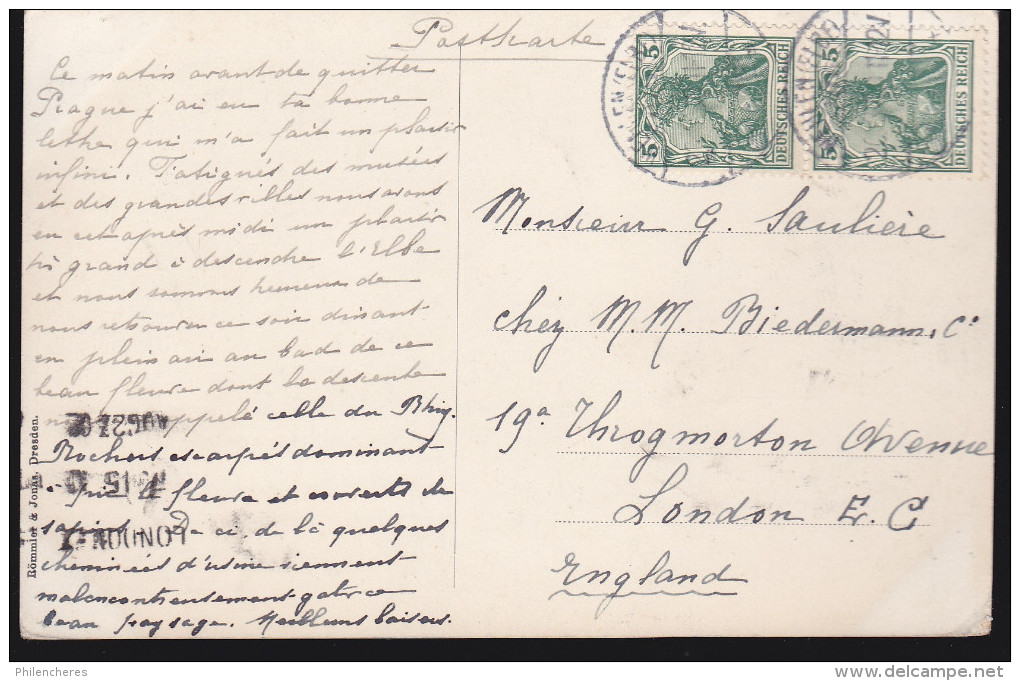 Postkarte
Ce matin avant de quitter
Prague j'ai eu ta bonne
lettre qui m'a fait un plaisir
infini. Fatigués des musées
et des grandes villes nous avons
eu cet après midi un plaisir
très grand à descendre l'Elbe
et nous sommes heureux de
nous retrouver ce soir dinant
en plein air au bord de ce
beau fleuve dont la descente
nous rappelé celle du Rhin.
Rochers escarpés dominant
le fleuve et couverts de
sapins. De ci de là quelques
cheminées d'usine viennent
malencontreusement gater ce
beau paysage. Meilleurs baisers.
Monsieur G. Saulière
chéz M.M. Biedermann, Cº
19a Throgmorton Avenue
London E. C
England
5 DEUTSCHES REICH 5
5 DEUTSCHES REICH 5
Römmler & Jonas, Dresden.
LONDON
AUG 22
Philencheres
www.delcampe.net